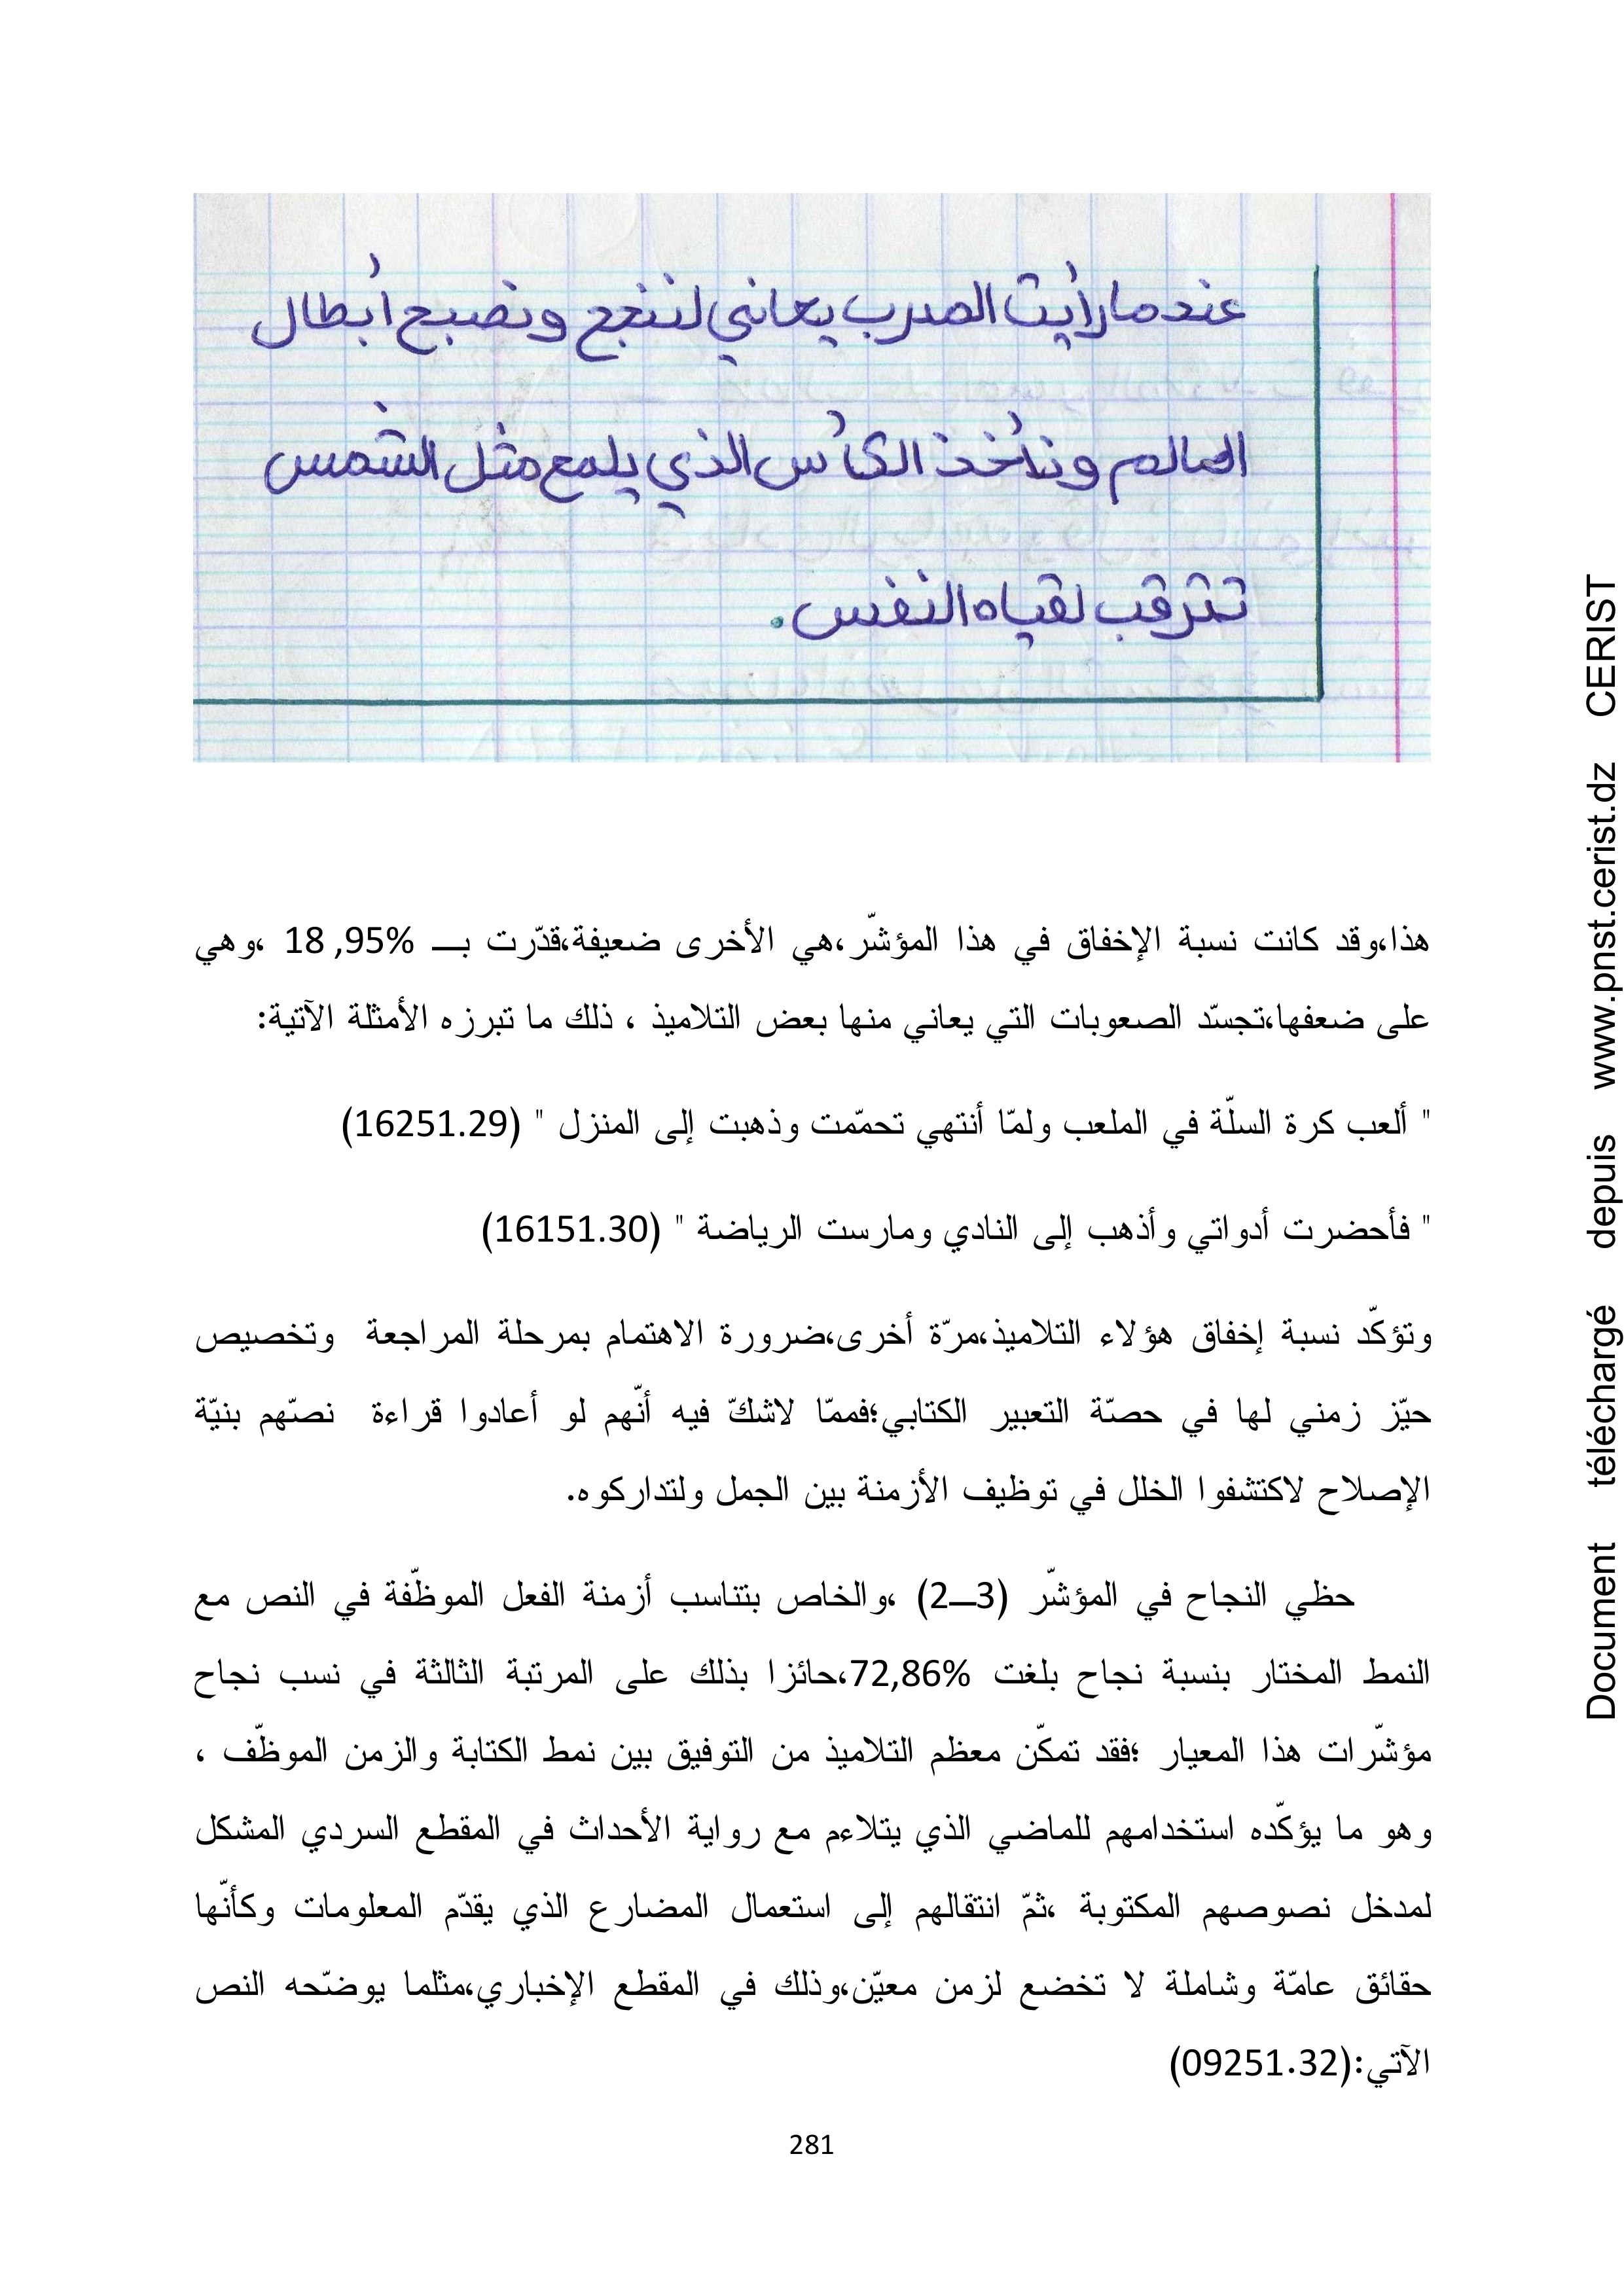 عندما رأيت المدرب يعاني لننجح ونصبح أبطال
العالم ونأخذ الكأس الذي يلمع مثل الشمس
تترقب لقياه النفس.
هذا،وقد كانت نسبة الإخفاق في هذا المؤشّر،هي الأخرى ضعيفة،قدّرت بـــ 18 ,95% ،وهي
على ضعفها،تجسّد الصعوبات التي يعاني منها بعض التلاميذ ، ذلك ما تبرزه الأمثلة الآتية:
" ألعب كرة السلّة في الملعب ولمّا أنتهي تحمّمت وذهبت إلى المنزل " (16251.29)
" فأحضرت أدواتي وأذهب إلى النادي ومارست الرياضة " (16151.30)
وتؤكّد نسبة إخفاق هؤلاء التلاميذ،مرّة أخرى،ضرورة الاهتمام بمرحلة المراجعة وتخصيص
حيّز زمني لها في حصّة التعبير الكتابي؛فممّا لاشكّ فيه أنّهم لو أعادوا قراءة نصّهم بنيّة
الإصلاح لاكتشفوا الخلل في توظيف الأزمنة بين الجمل ولتداركوه.
حظي النجاح في المؤشّر (3ــ2) ،والخاص بتناسب أزمنة الفعل الموظّفة في النص مع
النمط المختار بنسبة نجاح بلغت 72,86%،حائزا بذلك على المرتبة الثالثة في نسب نجاح
مؤشّرات هذا المعيار ؛فقد تمكّن معظم التلاميذ من التوفيق بين نمط الكتابة والزمن الموظّف ،
وهو ما يؤكّده استخدامهم للماضي الذي يتلاءم مع رواية الأحداث في المقطع السردي المشكل
لمدخل نصوصهم المكتوبة ،ثمّ انتقالهم إلى استعمال المضارع الذي يقدّم المعلومات وكأنّها
حقائق عامّة وشاملة لا تخضع لزمن معيّن،وذلك في المقطع الإخباري،مثلما يوضّحه النص
الآتي:(09251.32)
281
Document téléchargé depuis www.pnst.cerist.dz CERIST